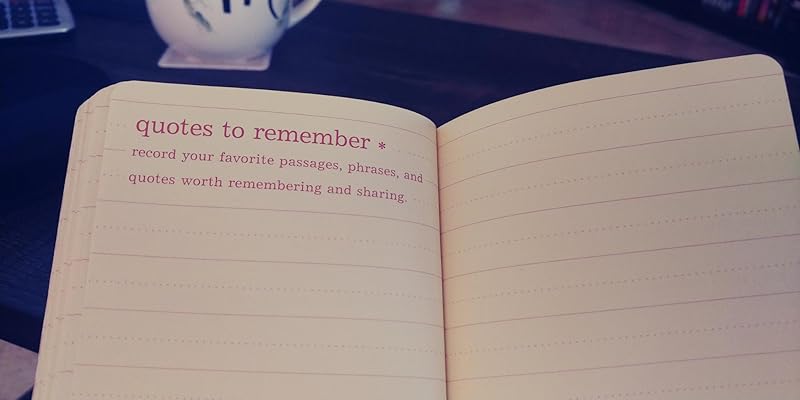 quotes to remember *
record your favorite passages, phrases, and
quotes worth remembering and sharing.